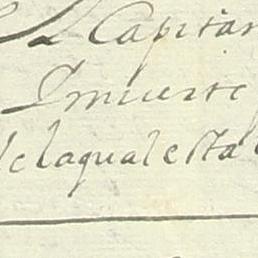 Capitan
Ymuerte
delaqualesta